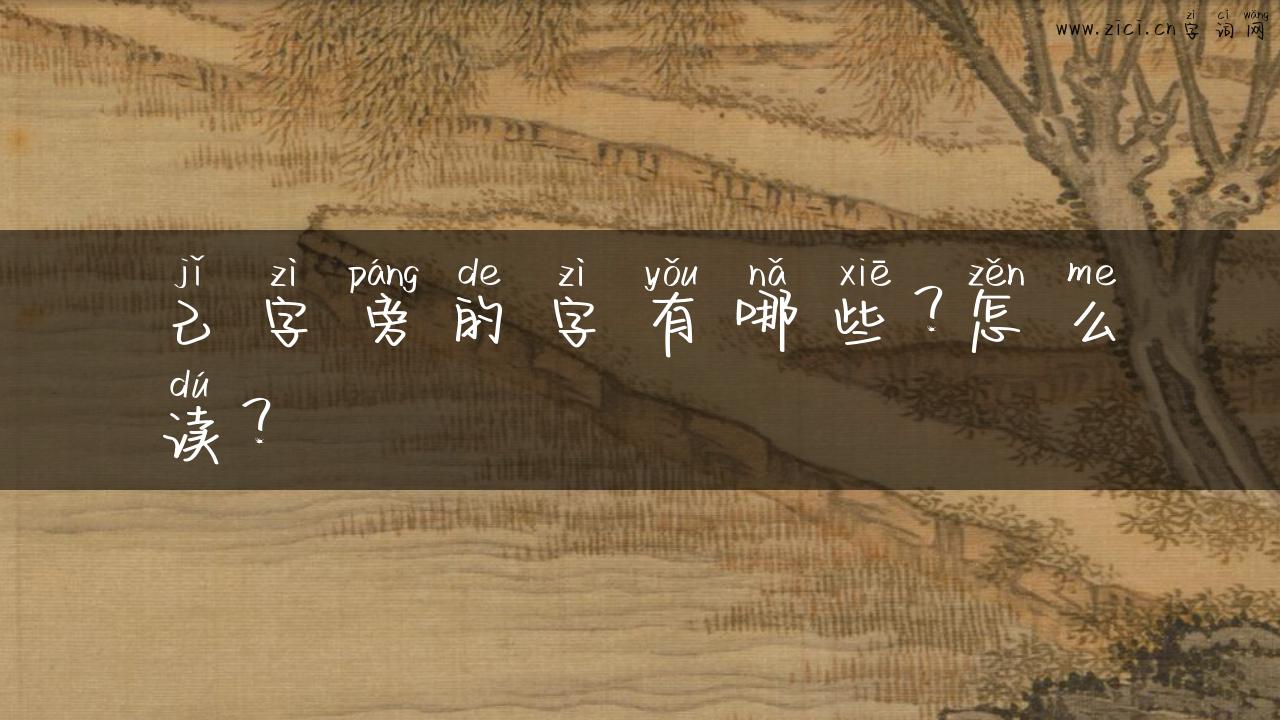 zì cí wǎng
www.zici.cn字词网
jǐ zì páng de zì yǒu nǎ xiē zěn me
己字旁的字有哪些?怎么
dú
读?